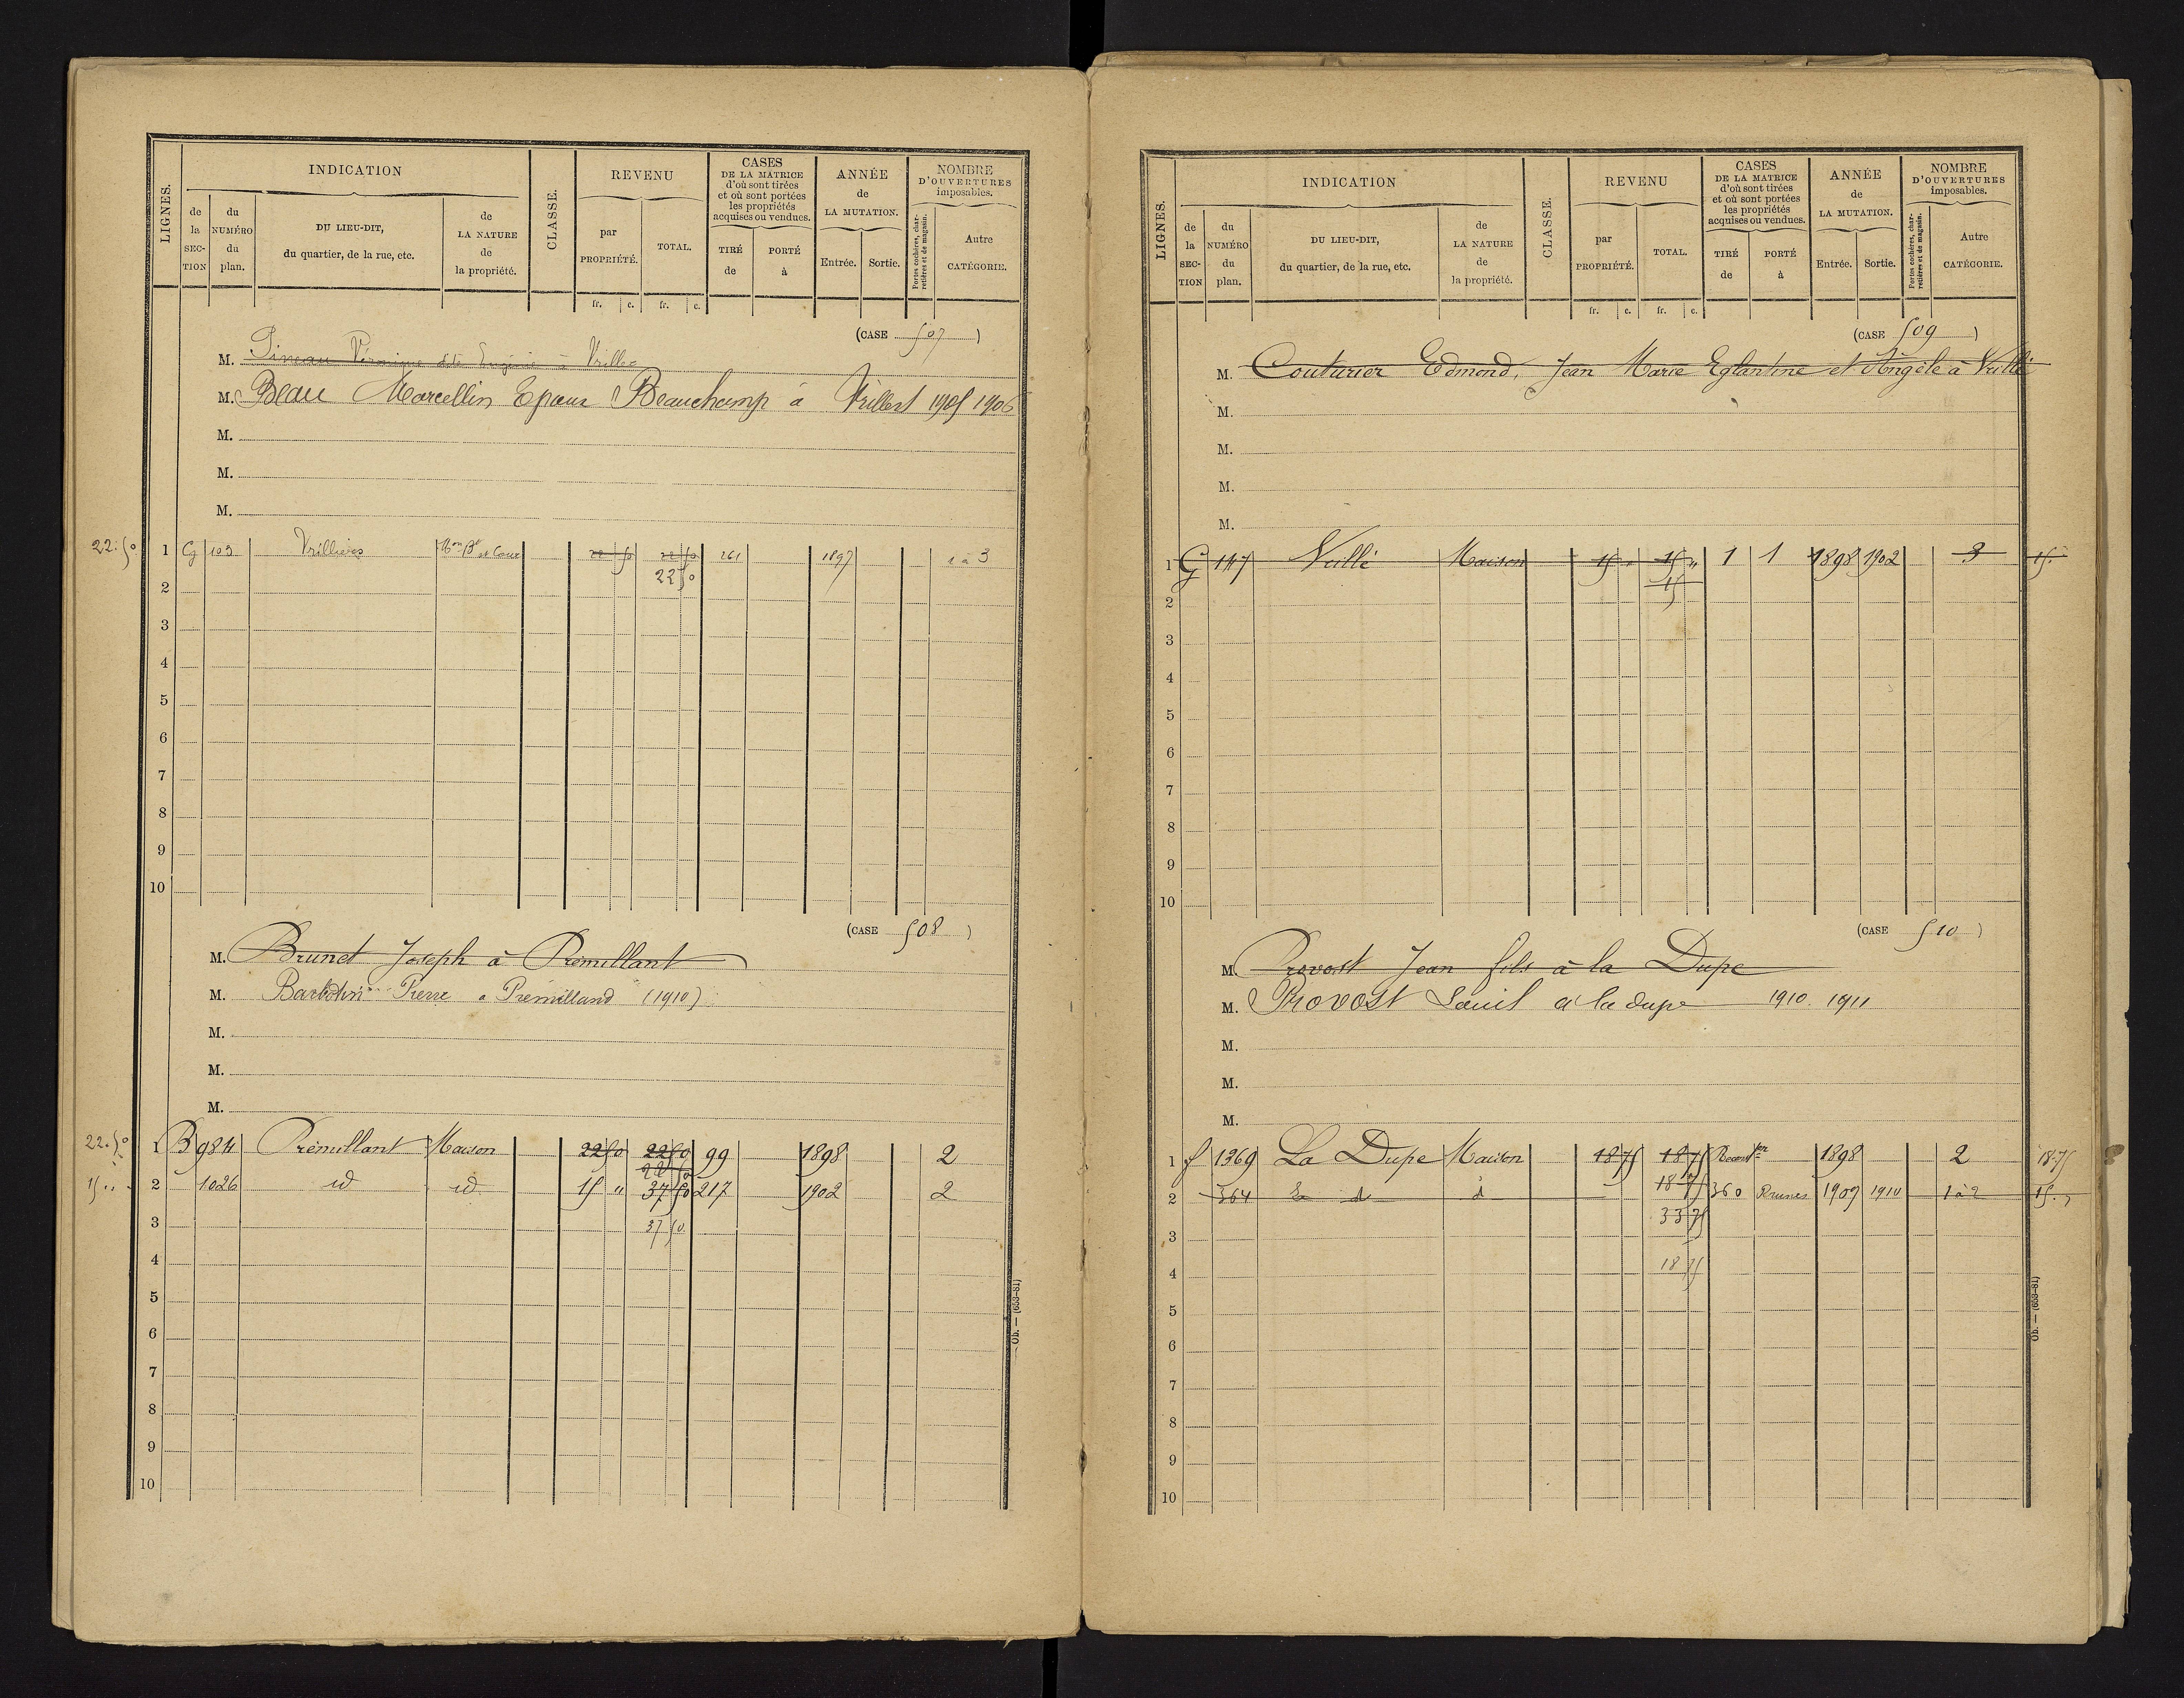 LIGNES.
INDICATION
de la SECTION
du NUMÉRO du plan.
DU LIEU-DIT, du quartier, de la rue, etc.
de LA NATURE de la propriété.
CLASSE.
REVENU
par PROPRIÉTÉ.
TOTAL.
fr. c. fr. c.
CASES DE LA MATRICE d'où sont tirées et où sont portées les propriétés acquises ou vendues.
TIRÉ de
PORTÉ à
ANNÉE de LA MUTATION.
Entrée. Sortie.
NOMBRE D'OUVERTURES imposables.
Portes cochères, charretières et de magasin.
Autre CATÉGORIE.
(CASE 507)
M. Pineau Véronique dte Eugénie à Vrille
M. Beau Marcellin Epoux Beauchamp à 1905 1906
M.
M.
M.
22.50 1 G 103 Vrillières Mon Bt et Cour 22 50 22 50 261 1897 1 à 3
22 50
2
3
4
5
6
7
8
9
10
(CASE 508)
M. Brunet Joseph à Prémillant
M. Barbotin Pierre à Prémilland (1910)
M.
M.
M.
22.50 1 B 984 Prémillant Maison 22 50 22 50 99 1898 2
22 50
15 " 2 1026 id id 15 " 37 50 217 1902 2
3 37 50
4
5
6
7
8
9
10
Ob. — (653-81)
LIGNES.
INDICATION
de la SECTION
du NUMÉRO du plan.
DU LIEU-DIT, du quartier, de la rue, etc.
de LA NATURE de la propriété.
CLASSE.
REVENU
par PROPRIÉTÉ.
TOTAL.
fr. c. fr. c.
CASES DE LA MATRICE d'où sont tirées et où sont portées les propriétés acquises ou vendues.
TIRÉ de
PORTÉ à
ANNÉE de LA MUTATION.
Entrée. Sortie.
NOMBRE D'OUVERTURES imposables.
Portes cochères, charretières et de magasin.
Autre CATÉGORIE.
(CASE 509)
M. Couturier Edmond, Jean Marie Eglantine et Angèle à Vrillé
M.
M.
M.
M.
1 G 147 Maison 15 " 15 " 1 1 1898 1902 3 15.
15
2
3
4
5
6
7
8
9
10
(CASE 510)
M. Provost Jean fils à la Dupe
M. Provost Louis à la dupe 1910 1911
M.
M.
M.
1 f 1369 La Dupe Maison 18 75 18 75 1898 2 18.75
18 75
2 364 d d 360 Prunes 1909 1910 1 à 2 15. "
33 75
3
4 18 75
5
6
7
8
9
10
Ob. — (653-81)